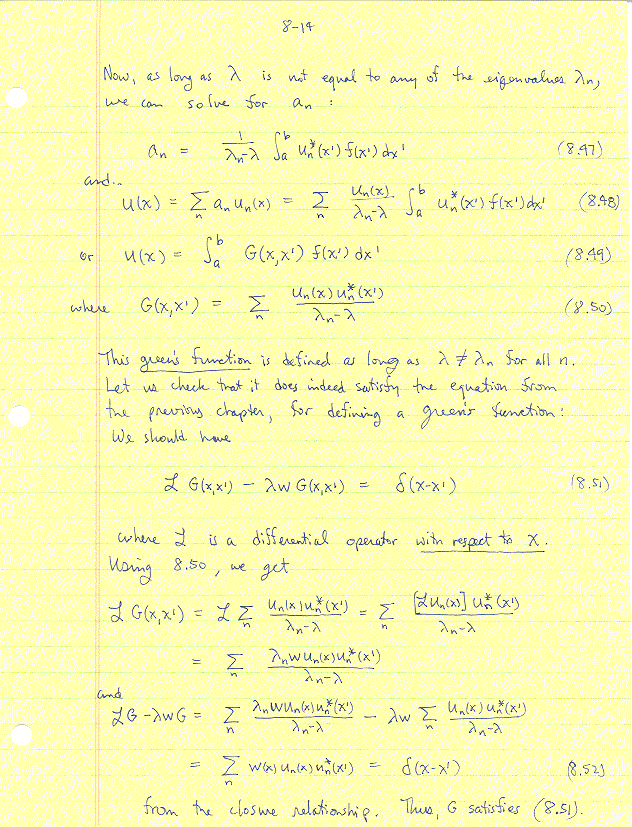 8-14
Now, as long as λ is not equal to any of the eigenvalues λn,
we can solve for an :
an = 1/(λn-λ) ∫_a^b un*(x') f(x') dx' (8.47)
and..
u(x) = Σ_n an un(x) = Σ_n un(x)/(λn-λ) ∫_a^b un*(x') f(x') dx' (8.48)
or u(x) = ∫_a^b G(x,x') f(x') dx' (8.49)
where G(x,x') = Σ_n un(x) un*(x')/(λn-λ) (8.50)
This green's function is defined as long as λ ≠ λn for all n.
Let us check that it does indeed satisfy the equation from
the previous chapter, for defining a green's function:
We should have
ℒ G(x,x') - λw G(x,x') = δ(x-x') (8.51)
where ℒ is a differential operator with respect to x.
Using 8.50, we get
ℒ G(x,x') = ℒ Σ_n un(x) un*(x')/(λn-λ) = Σ_n [ℒ un(x)] un*(x')/(λn-λ)
= Σ_n λn w un(x) un*(x')/(λn-λ)
and
ℒG - λwG = Σ_n λn w un(x) un*(x')/(λn-λ) - λw Σ_n un(x) un*(x')/(λn-λ)
= Σ_n w(x) un(x) un*(x') = δ(x-x') (8.52)
from the closure relationship. Thus, G satisfies (8.51).